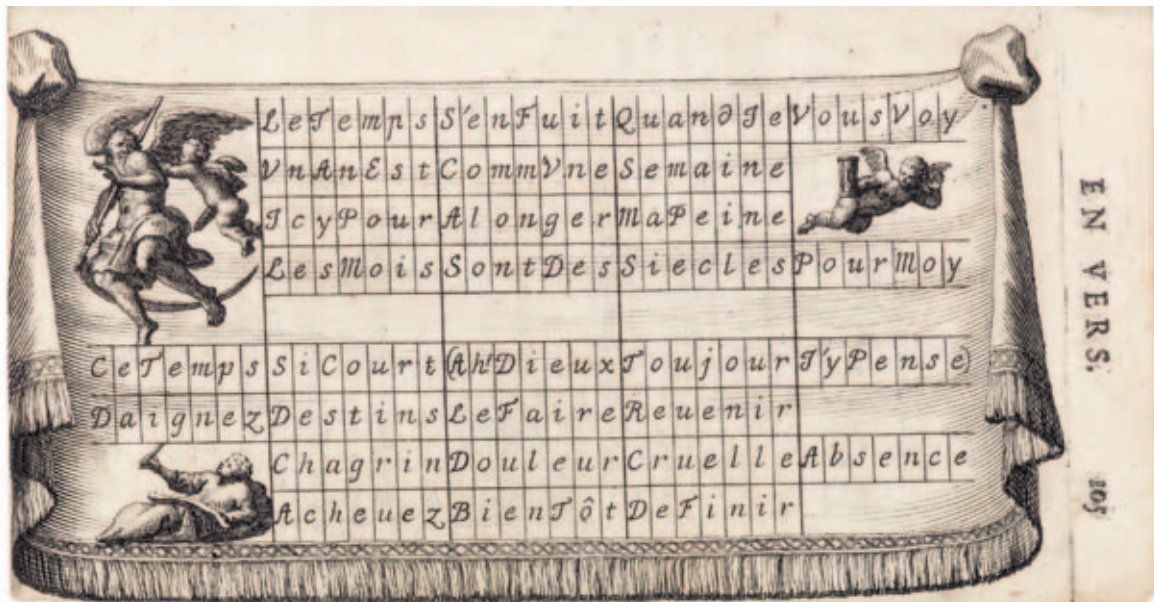 Le Temps S'en Fuit Quand Je Vous Voy
Vn An Est Comm Vne Semaine
Icy Pour Alonger Ma Peine
Les Mois Sont Des Siecles Pour Moy
Ce Temps Si Court (Ah! Dieux Toujour J'y Pense)
Daignez Destins Le Faire Reuenir
Chagrin Douleur Cruelle Absence
Acheuez Bien Tôt De Finir
EN VERS.
105